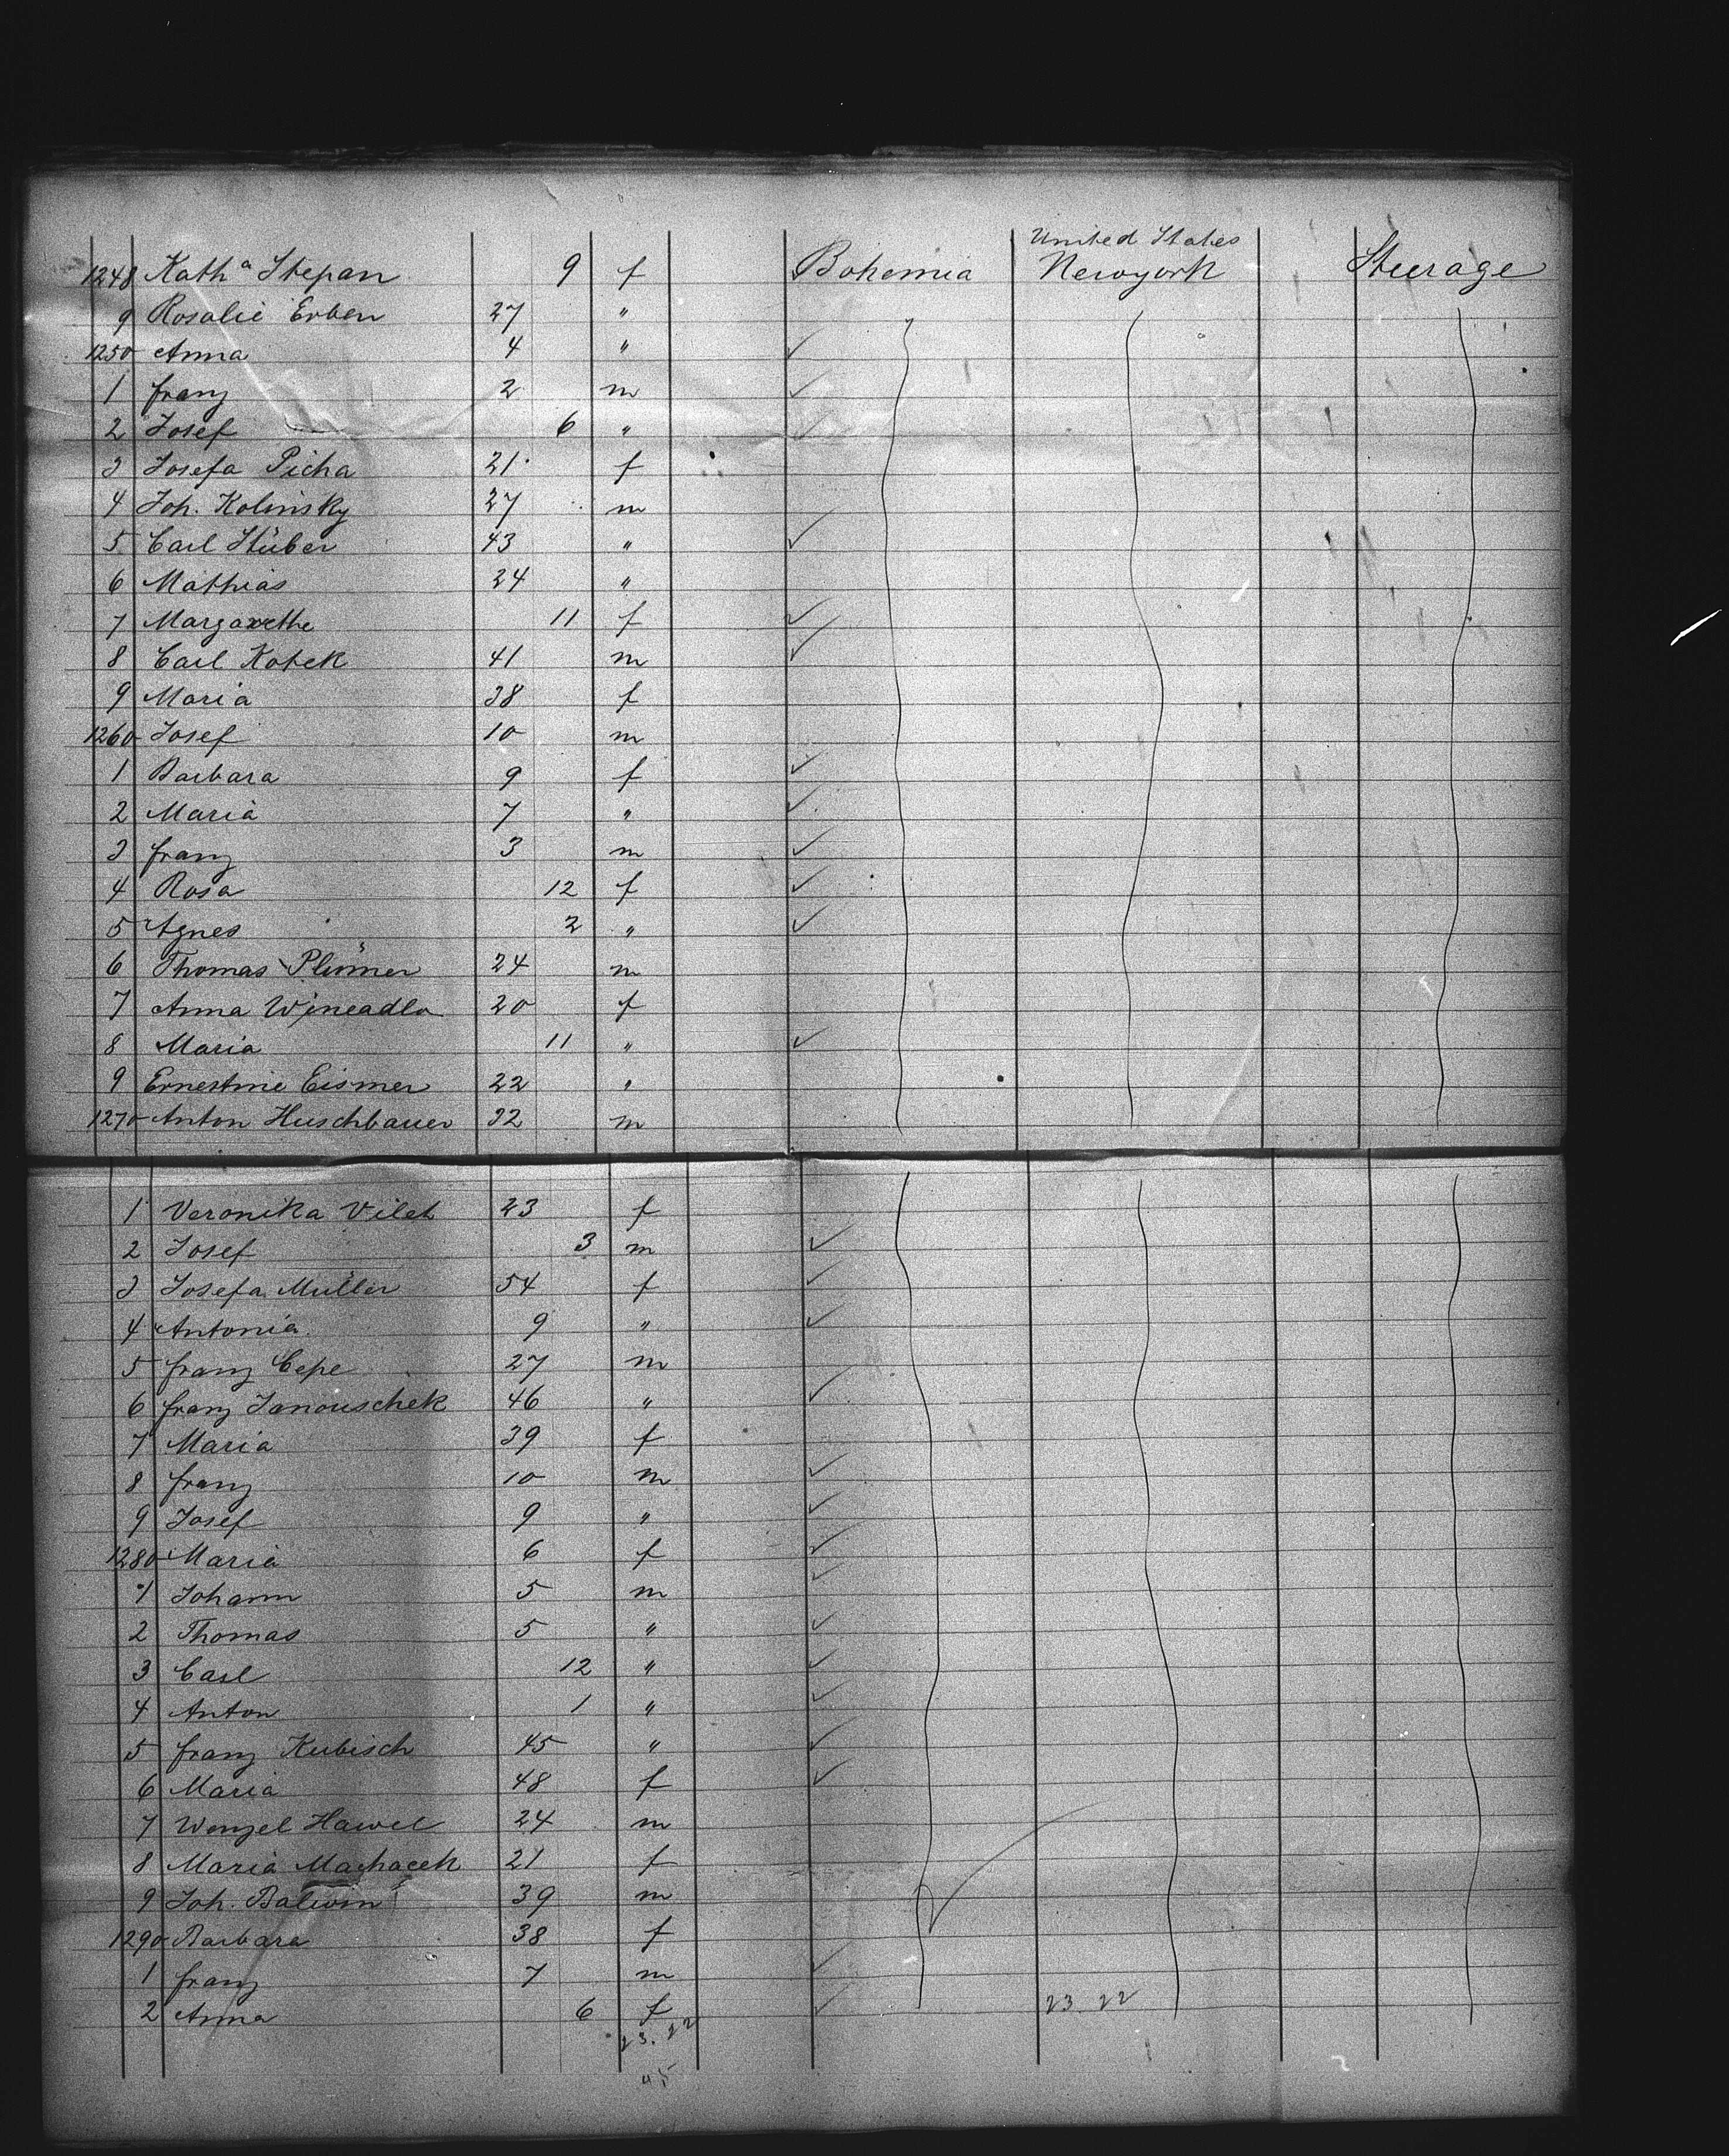 United States
1248 Kath.a Stepan 9 f Bohemia Newyork Steerage
9 Rosalie Erben 27 "
1250 Anna 4 "
1 franz 2 m
2 Josef 6 "
3 Josefa Picha 21 f
4 Joh. Kolinsky 27 m
5 Carl Stüber 43 "
6 Mathias 24 "
7 Margarethe 11 f
8 Carl Kotek 41 m
9 Maria 38 f
1260 Josef 10 m
1 Barbara 9 f
2 Maria 7 "
3 franz 3 m
4 Rosa 12 f
5 Agnes 2 "
6 Thomas 24 m
7 Anna 20 f
8 Maria 11 "
9 Ernestine Eismer 22 "
1270 Anton Huschbauer 32 m
1 Veronika Vilet 23 f
2 Josef 3 m
3 Josefa Müller 54 f
4 Antonia 9 "
5 franz Cepe 27 m
6 franz Janouschek 46 "
7 Maria 39 f
8 franz 10 m
9 Josef 9 "
1280 Maria 6 f
1 Johann 5 m
2 Thomas 5 "
3 Carl 12 "
4 Anton 1 "
5 franz Kubisch 45 "
6 Maria 48 f
7 Wenzel Hawel 24 m
8 Maria Machacek 21 f
9 Joh. Balwin 39 m
1290 Barbara 38 f
1 franz 7 m
2 Anna 6 f 23. 22
23. 22
45